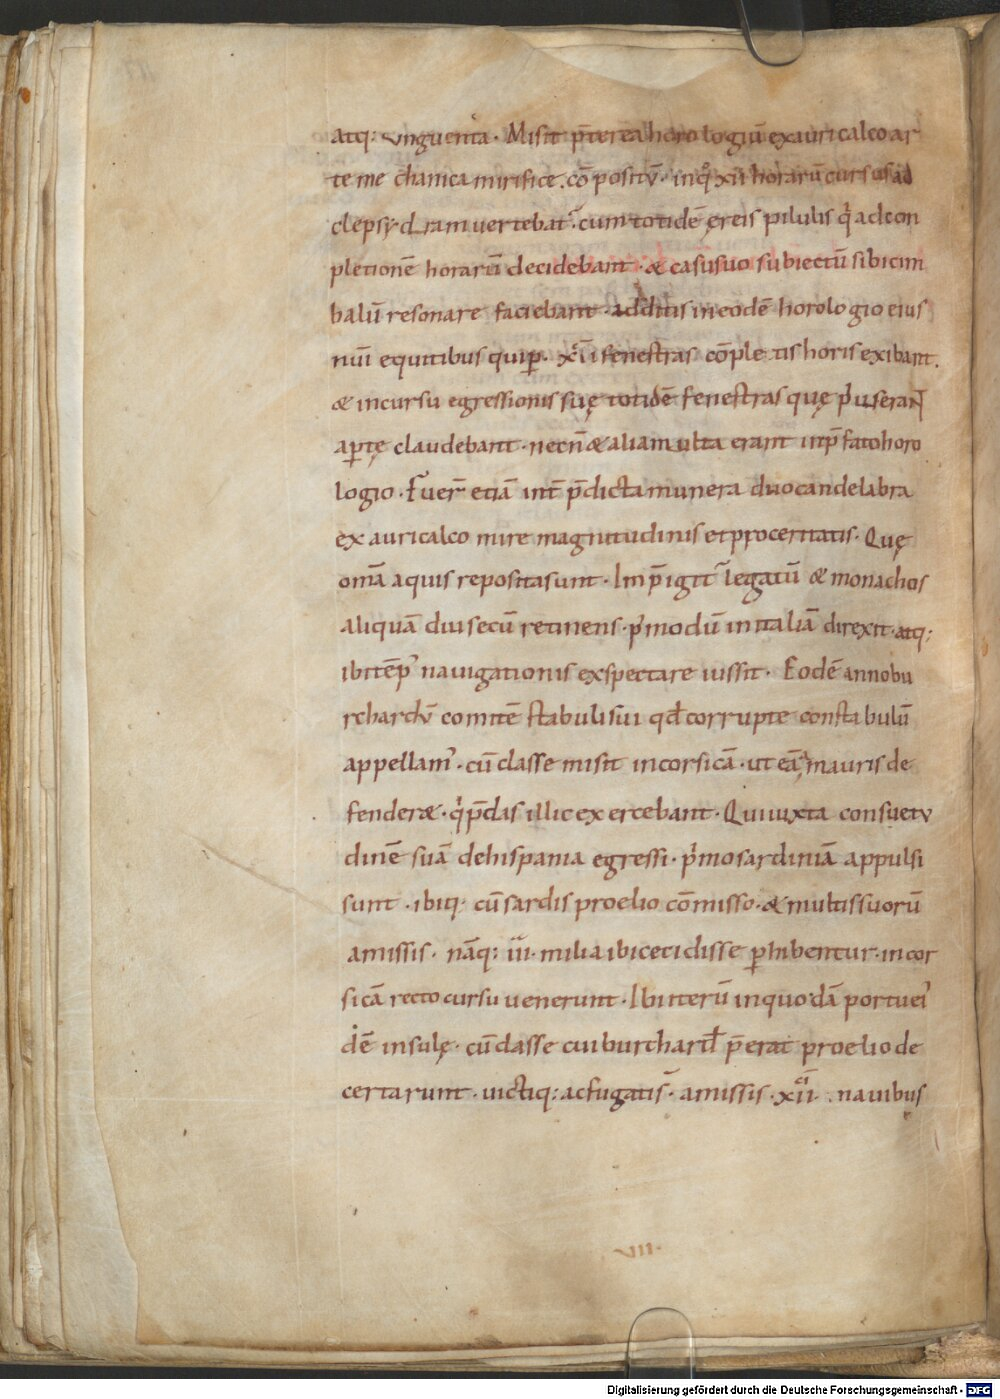 atq; unguenta. Misit p̄terea horologiū ex auricalco ar
te mechanica mirifice cōpositū. in q̊ xii horarū cursus ad
clepsydram vertebat̄. cum totidē ęreis pilulis q̇ ad con
pletionē horarū decidebant. & casu suo subiectū sibi cim
balū resonare faciebant. additis in eodē horologio eius
mi equitibus qui p. xii fenestras cōpletis horis exibant.
& incursu egressionis suę totidē fenestras quę prius erant
aptę claudebant. necn̄ & alia multa erant in p̄fato horo
logio. Fuer̄ etiā int̄ p̄dicta munera duo candelabra
ex auricalco mire magnitudinis et proceritatis. Quę
om̄a aquis reposita sunt. Imp̄igit̄ legatū & monachos
aliquā diu secū retinens. p̓mo dū in italiā direxit. atq;
ibi tēp̓ navigationis exspectare iussit. Eodē anno bu
rchardū comitē stabuli sui qđ corrupte constabulū
appellam̓. cū classe misit in corsicā. ut eā mauris de
fender&. q̇ p̄das illic exercebant. Qui iuxta consuetu
dinē suā de hispania egressi. p̓mo sardiniā appulsi
sunt. ibiq; cū sardis proelio cōmisso. & multis suorū
amissis. nāq; iii. milia ibi cecidisse phibentur. in cor
sicā recto cursu venerunt. Ibi iterū in quodā portu ei
dē insulę. cū classe cui burchard̄ p̄erat proelio de
certarunt. victiq; ac fugatis̄. amissis. xiii. navibus
vii.
Digitalisierung gefördert durch die Deutsche Forschungsgemeinschaft - DFG